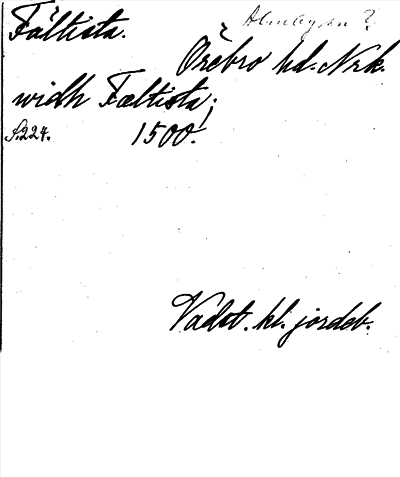 Fältista.
Örebro hd. Nrk.
widh Fæltista;
S.224. 1500.
Vadst. kl. jordeb.